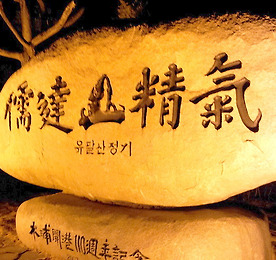 儒達山精氣
유달산정기
木浦開港110週年記念